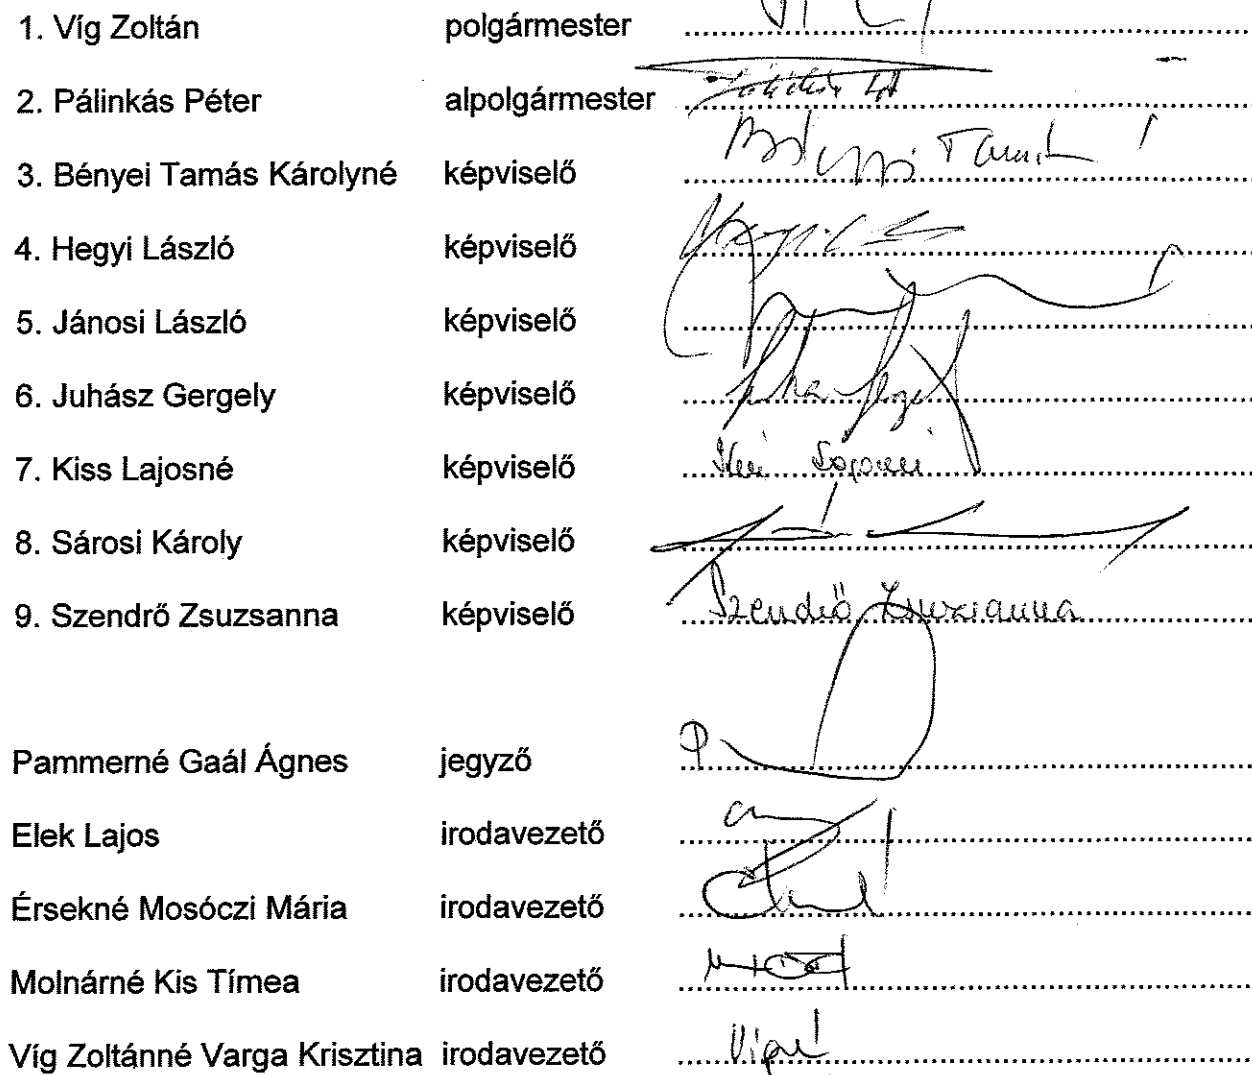 1. Víg Zoltán polgármester
2. Pálinkás Péter alpolgármester
3. Bényei Tamás Károlyné képviselő
4. Hegyi László képviselő
5. Jánosi László képviselő
6. Juhász Gergely képviselő
7. Kiss Lajosné képviselő
8. Sárosi Károly képviselő
9. Szendrő Zsuzsanna képviselő Szendrő Zsuzsanna
Pammerné Gaál Ágnes jegyző
Elek Lajos irodavezető
Érsekné Mosóczi Mária irodavezető
Molnárné Kis Tímea irodavezető
Víg Zoltánné Varga Krisztina irodavezető